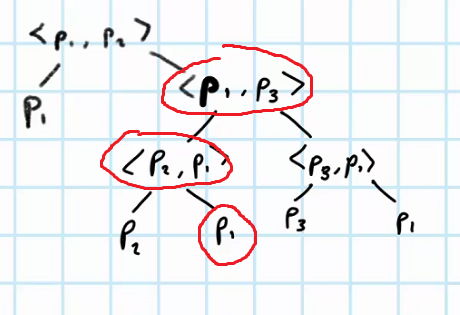 <P₁, P₂>
P₁ <P₁, P₃>
<P₂, P₁> <P₃, P₁>
P₂ P₁ P₃ P₁